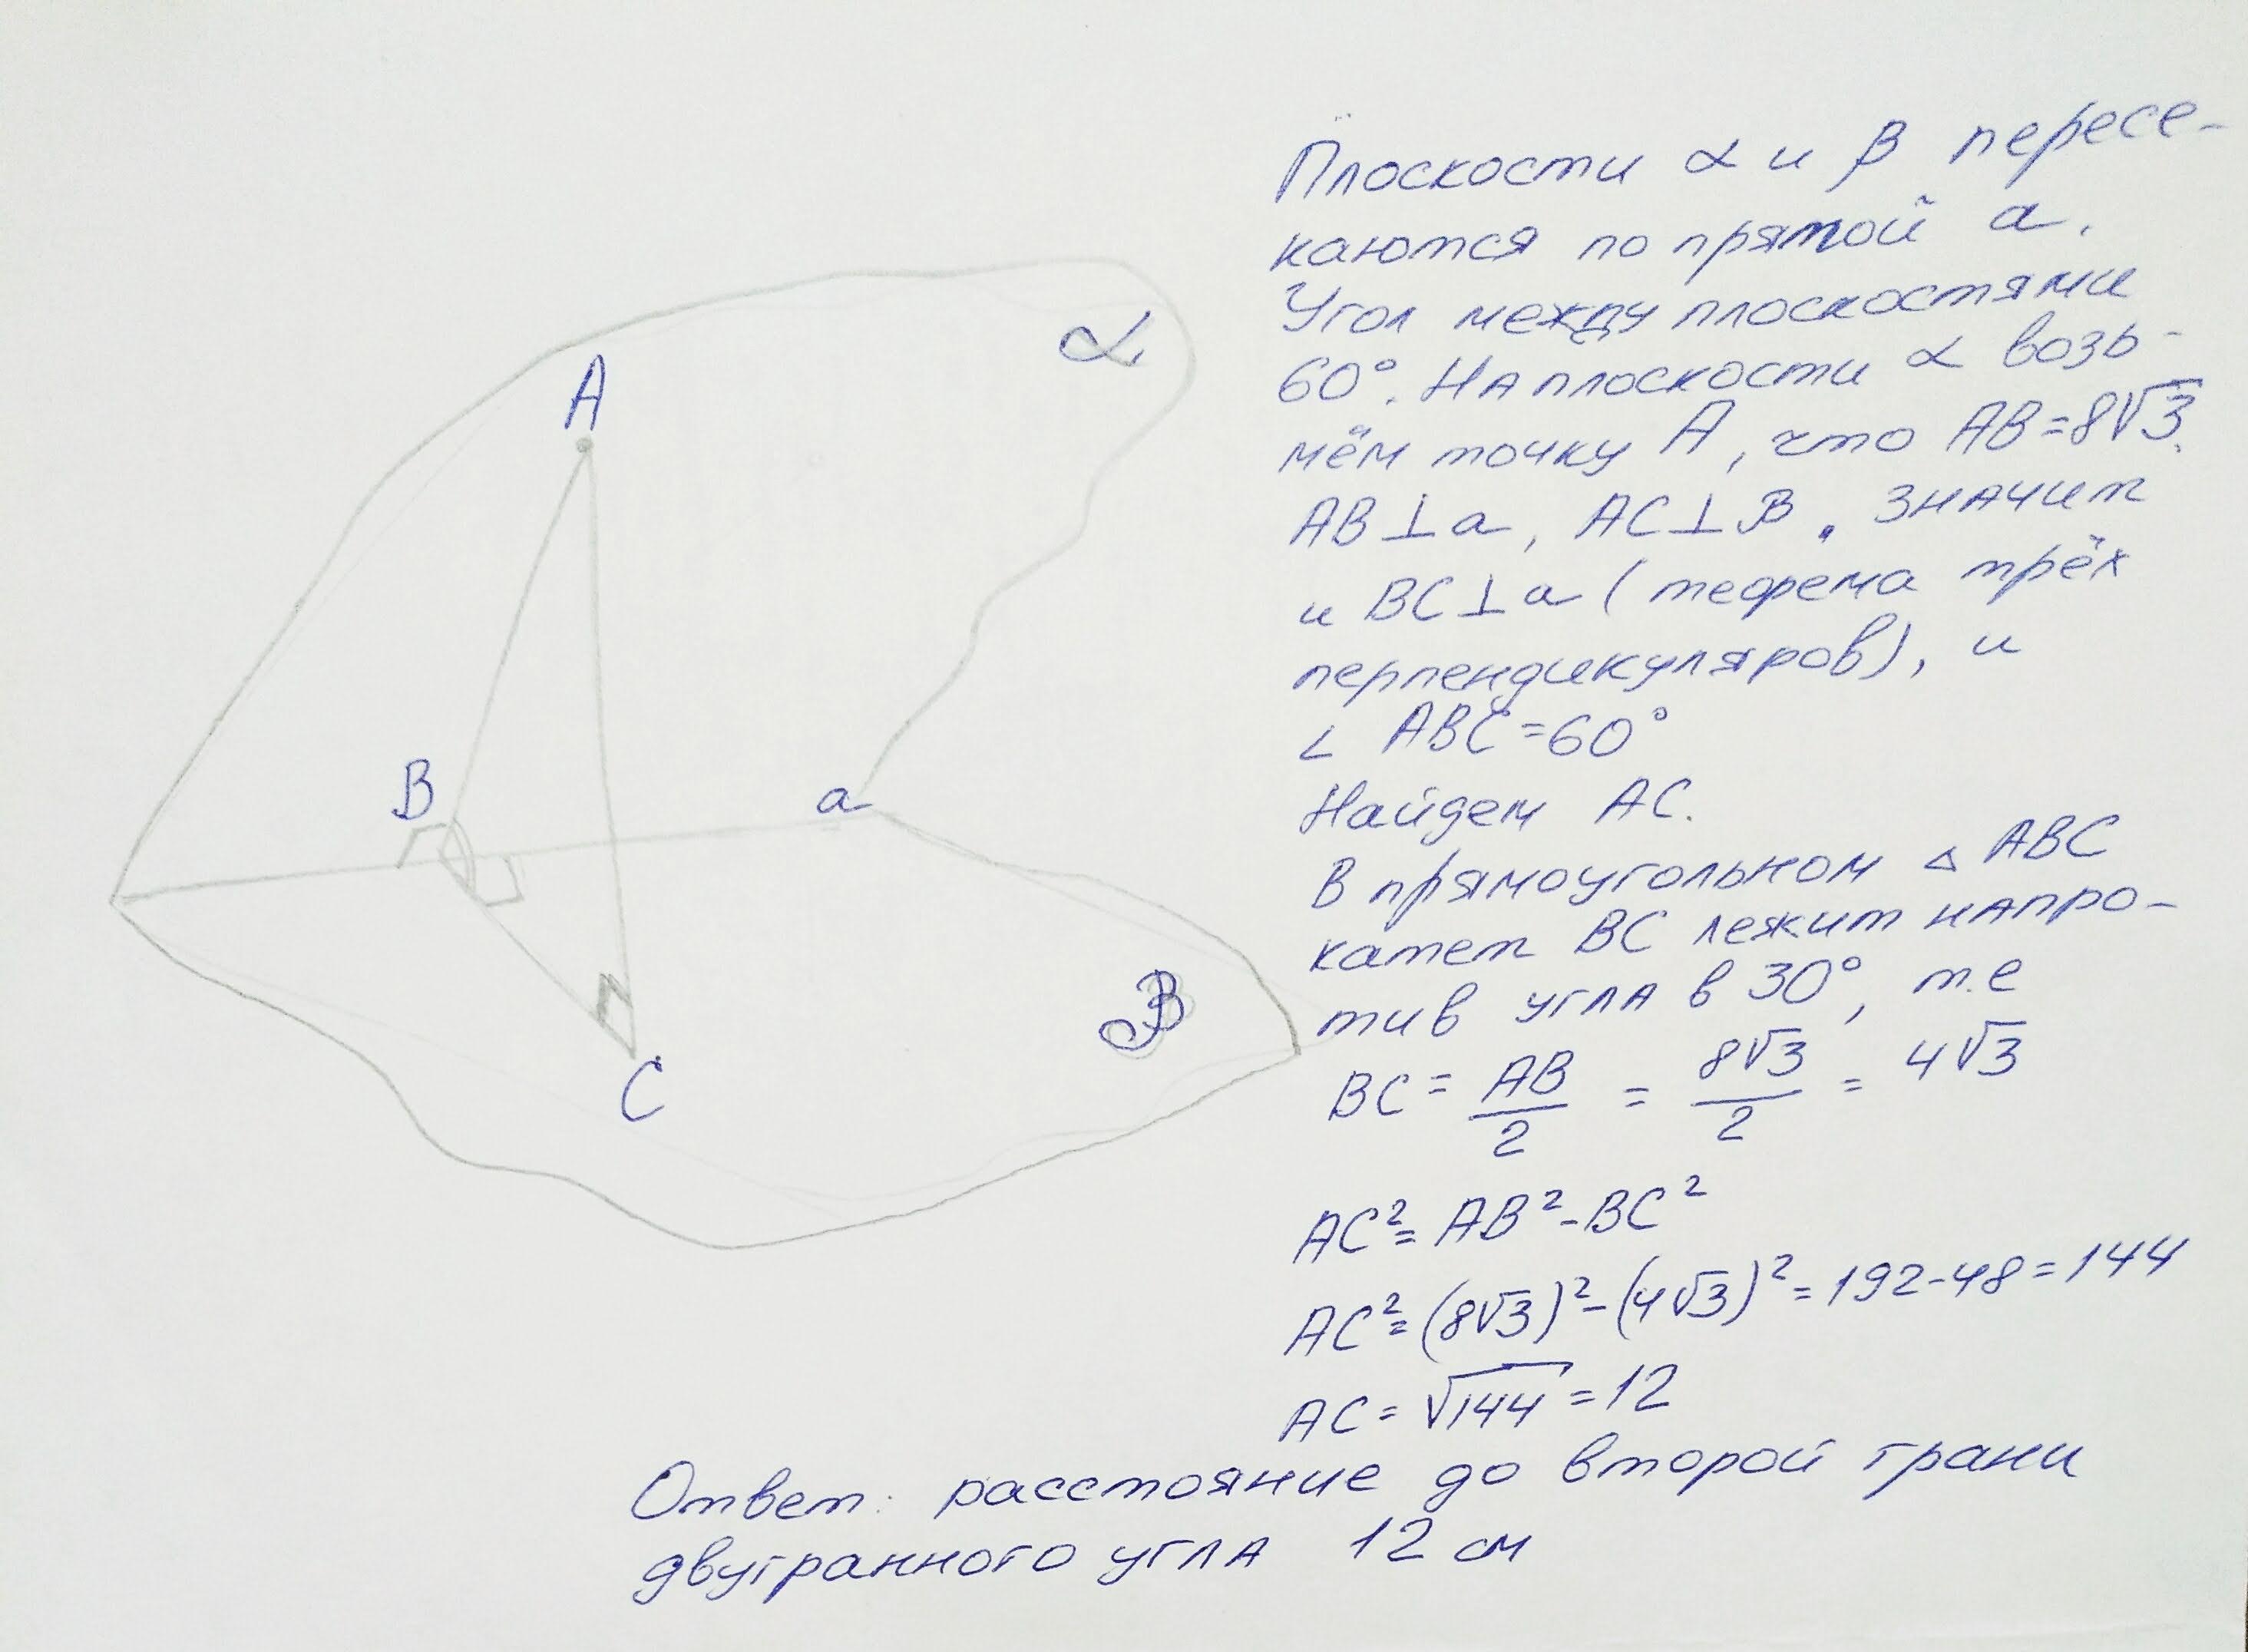 A
α
B
a
β
C
Плоскости α и β пересе-
каются по прямой a.
Угол между плоскостями
60°. На плоскости α возь-
мём точку A, что AB=8√3.
AB⊥a, AC⊥β. Значит
и BC⊥a (теорема трёх
перпендикуляров), и
∠ ABC=60°
Найдем AC.
В прямоугольном △ ABC
катет BC лежит напро-
тив угла в 30°, т.е
BC = AB/2 = 8√3/2 = 4√3
AC²= AB²-BC²
AC²= (8√3)²-(4√3)²=192-48=144
AC= √144 =12
Ответ: расстояние до второй грани
двугранного угла 12 см